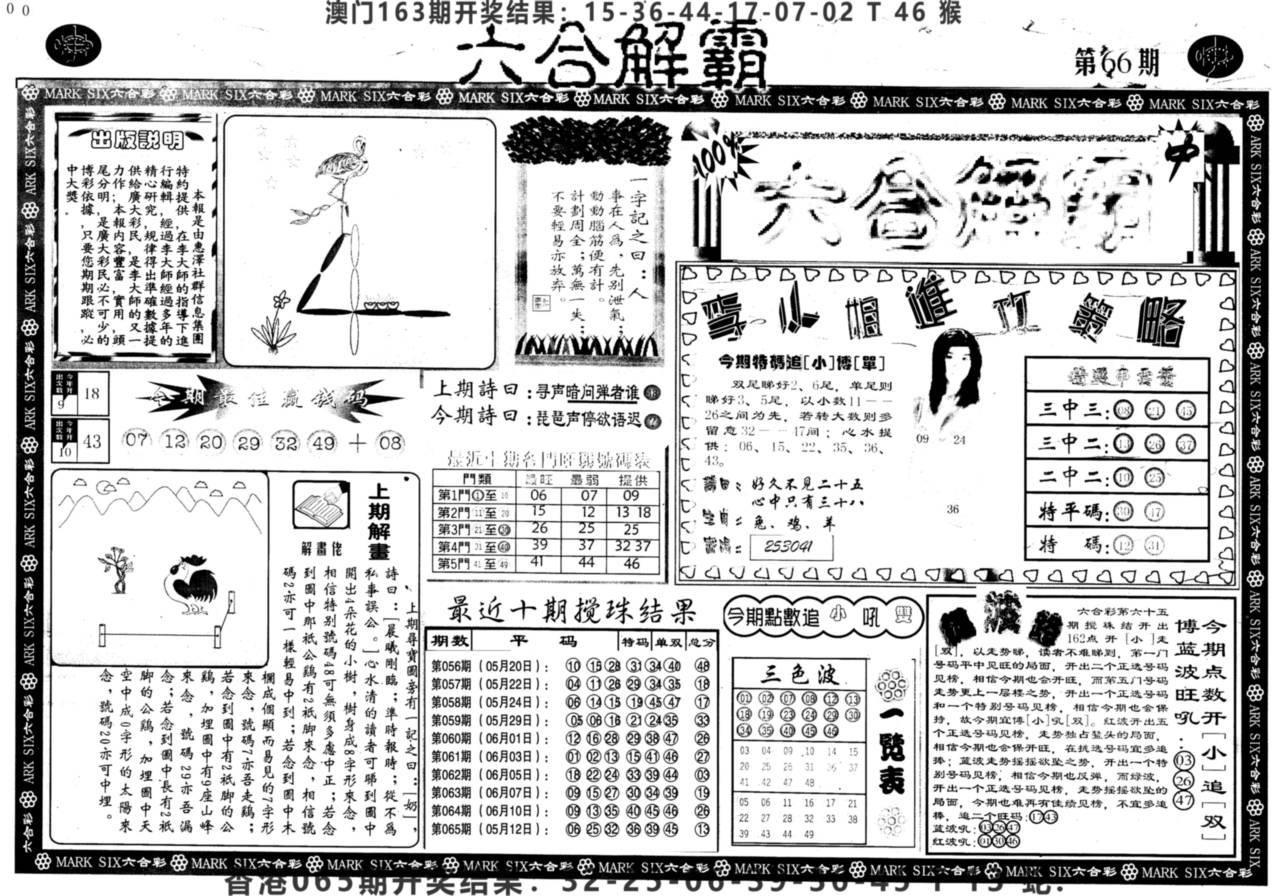 澳门163期开奖结果：15-36-44-17-07-02 T 46 猴
六合解霸
第66期
MARK SIX六合彩
出版説明
本報是由惠澤社群信息集團
特約提供，在李大師的指導下進
行編輯，經過李大師的
精心研究，規律得出準確數據提
供給廣大彩民，是李大師經過多年的
力作，本報内容豐富，實用，頭
尾分明；是廣大彩民必不可少的
博彩依據，只要您期期跟蹤，必
中大獎。
一字記之曰：人
事在人爲，先別泄氣；
動動腦筋便有計。
計劃周全；萬無一失；
不要輕易亦放弃。
100%
中
六合解霸
今期特碼追[小]博[單]
双尾睇好2、6尾，单尾则
睇好3、5尾，以小数11——
26之间为先，若转大数则多
留意32——47间；心水提
供：06、15、22、35、36、
43。
好久不见二十五
心中只有三十八
兔、鸡、羊
253041
09 24
36
三中三：08 21 45
三中二：13 26 37
二中二：10 25
特平碼：30 47
特　碼：12 31
出次数 9 今年月 18
出次数 10 今年月 43
今期最佳贏錢码
07 12 20 29 32 49 + 08
上期詩曰：寻声暗问弹者谁
今期詩曰：琵琶声停欲语迟
門類 最旺 最弱 提供
第1門①至10 06 07 09
第2門11至20 15 12 13 18
第3門21至30 26 25 25
第4門31至40 39 37 32 37
第5門41至49 41 44 46
上期解畫
解畫佬
上期尋寶圖旁有一記之曰：[奶]，
詩曰：[晨曦剛臨；準時報時；從不爲
私事誤公。]心水清的讀者可睇到圖中
開出4朵花的小樹，樹身成8字形來念，
相信特别號碼48可無須多慮中正；若念
到圖中那衹公鷄有2衹脚來念，相信號
碼2亦可一樣輕易中到；若念到圖中木
欄成個顯而易見的7字形
來念，號碼7亦吾走鷄；
若念到圖中有2衹脚的公
鷄，加埋圖中有9座山峰
來念，號碼29亦吾漏
念；若念到圖中長有2衹
脚的公鷄，加埋圖中天
空中成0字形的太陽來
念，號碼20亦可中埋。
最近十期搅珠结果
期数 平　码 特码 单双 总分
第056期（05月20日）： 10 15 28 31 34 40 48
第057期（05月22日）： 04 11 26 29 34 35 18
第058期（05月24日）： 06 14 15 19 45 47 17
第059期（05月29日）： 05 06 16 21 24 35 33
第060期（06月01日）： 12 16 28 29 38 47 26
第061期（06月03日）： 01 02 13 15 41 46 27
第062期（06月05日）： 18 22 24 33 39 44 03
第063期（06月07日）： 09 15 27 30 34 39 19
第064期（06月10日）： 09 13 35 40 45 46 26
第065期（05月12日）： 06 25 32 36 39 45 13
今期點數追 小 吼 雙
三色波
01 02 07 08 12 13
18 19 23 24 29 30
34 35 40 45 46
03 04 09 10 14 15
20 25 26 31 36 37
41 42 47 48
05 06 11 16 17 21
22 27 28 32 33 38
39 43 44 49
一覽表
六合彩第六十五
期搅珠结开出
162点开[小]走
[双]，以走势睇，读者不难睇到，第一门
号码平中见旺的局面，开出二个正选号码
见榜，相信今期也会开旺，而第五门号码
走势更上一层楼之势，开出一个正选号码
和一个特别号码见榜，相信今期也会保
持，故今期宜博[小]吼[双]。红波开出五
个正选号码见榜，走势独占鳌头的局面，
相信今期也会保开旺，在挑选号码宜多追
捧；蓝波走势摇摇欲坠之势，开出一个特
别号码见榜，相信今期也反弹，而绿波，
开出一个正选号码见榜，走势摇摇欲坠的
局面，今期也难再有佳绩见榜，不宜多追
捧，追二个旺码：17 43
蓝波吼：03 26 47
红波吼：01 30 46
今期点数开[小]追[双]
博蓝波旺吼：03 26 47
香港065期开奖结果：32-25-06-39-36-45 T 13 蛇.